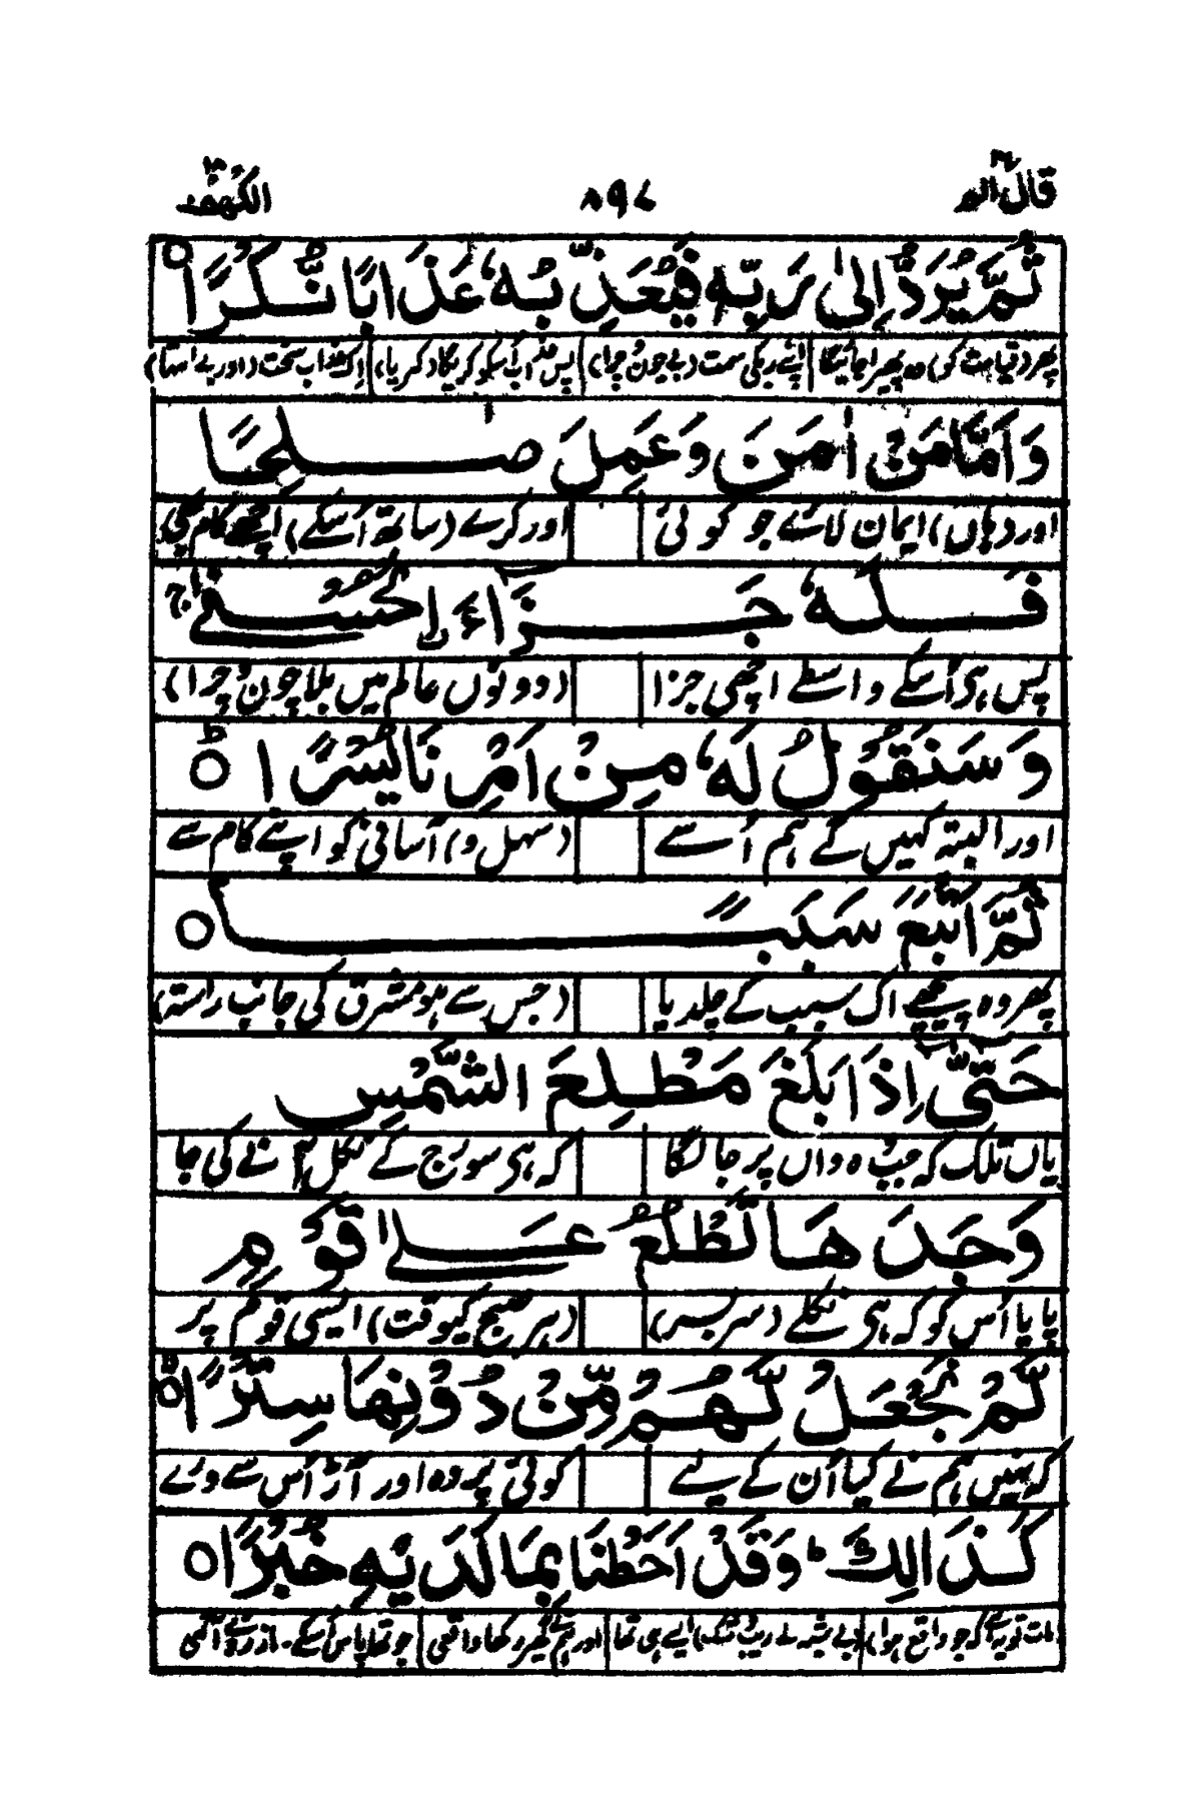 قال الم ۸۹۷ الكهف
ثُمَّ يُرَدُّ إِلٰى رَبِّهٖ فَيُعَذِّبُهٗ عَذَابًا نُّكْرًا ○
پھر (قیامت کو) وہ پھیرا جائیگا اپنے رب کی سمت (بے چون چرا) پس آپ اسکو کریگا (کریا) اک عذاب سخت (اور بے انتہا)
وَاَمَّا مَنْ اٰمَنَ وَعَمِلَ صٰلِحًا
اور (ہاں) ایمان لائے جو کوئی اور کرے (ساتھ اُسکے) اچھے کام بھی
فَلَهٗ جَزَآءَ اِۨلْحُسْنٰى ج
پس ہی اُسکے واسطے اچھی جزا (دونوں عالم میں بلا چون چرا)
وَسَنَقُوْلُ لَهٗ مِنْ اَمْرِنَا يُسْرًا ○ ط
اور البتہ کہیں گے ہم اُسے (سہل و) آسانی کو اپنے کام سے
ثُمَّ اَتْبَعَ سَبَبًا ○
پھر وہ پیچھے اک سبب کے چلدیا (جس سے ہو مشرق کی جانب راستہ)
حَتّٰٓى اِذَا بَلَغَ مَطْلِعَ الشَّمْسِ
یاں تلک کہ جب وہ واں پر جا لگا کہ ہی سورج کے نکل آنے کی جا
وَجَدَهَا تَطْلُعُ عَلٰى قَوْمٍ
پایا اُس کو کہ ہی نکلے (سربسر) (ہر صبح کیوقت) ایسی قوم پر
لَّمْ نَجْعَلْ لَّهُمْ مِّنْ دُوْنِهَا سِتْرًا ○ ط
کہ نہیں ہم نے کیا اُن کے لیے کوئی پردہ اور آڑ اُس سے ورے
كَذَالِكَ ط وَقَدْ اَحَطْنَا بِمَا لَدَيْهِ خُبْرًا ○
بات تو یہ ہے کہ جو واقع ہوا) (بے شبہ بے ریب شک) ایسے ہی تھا اور ہم نے گھیر رکھا واقعی جو تھا پاس اُسکے از روئے آگہی